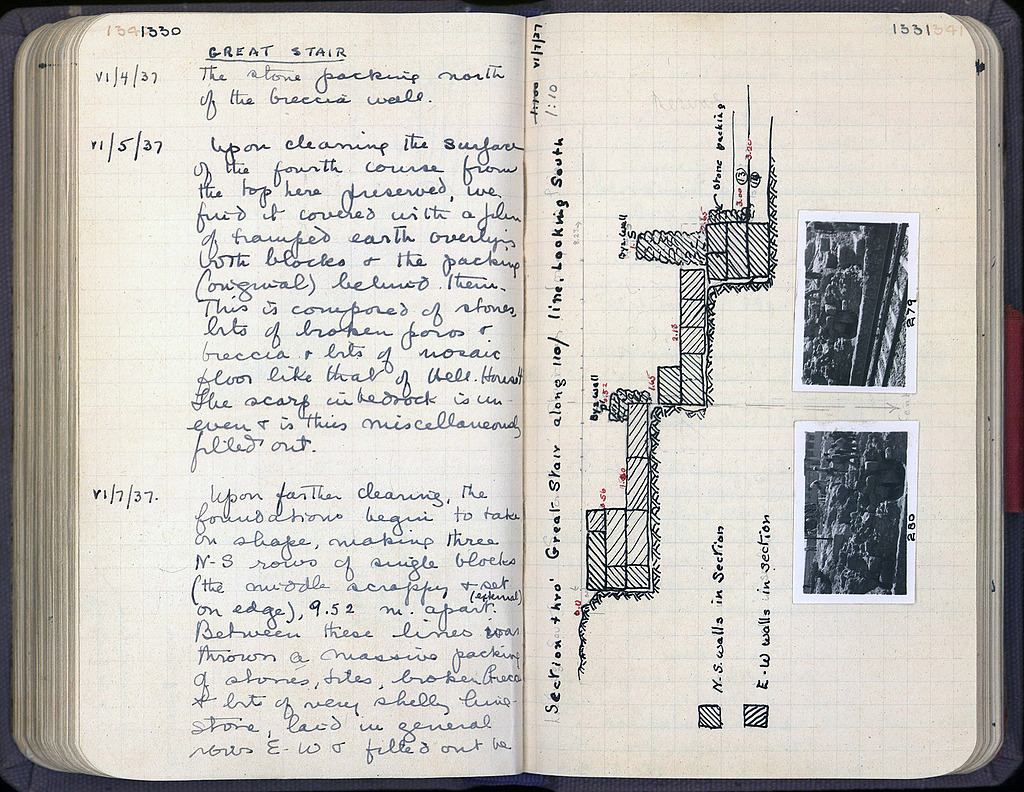 1341330
GREAT STAIR
VI/4/37 The stone packing north
of the breccia wall.
VI/5/37 Upon cleaning the surface
of the fourth course from
the top here preserved, we
find it covered with a film
of tramped earth overlying
both blocks & the packing
(original) behind them.
This is composed of stones,
bits of broken poros &
breccia & bits of mosaic
floor like that of Hell. House
The scarp in bedrock is un-
even & is thus miscellaneously
filled out.
VI/7/37. Upon farther clearing, the
foundations begin to take
on shape, making three
N-S rows of single blocks
(the middle scrappy & set
on edge), 9.52 m. (external) apart.
Between these lines was
thrown a massive packing
of stones, tiles, broken brecc
& bits of very shelly lime-
stone, laid in general
rows E-W & filled out be
1331341
1:100 VI/7/37
1:10
Section thro' Great Stair along 110/ line, Looking South
Stone packing
3.00 (13)
3.20
0.65
Byz wall
1.5
2.18
1.65
Byz wall
0.56
0.12
N-S. walls in Section
E-W walls in section
279
280